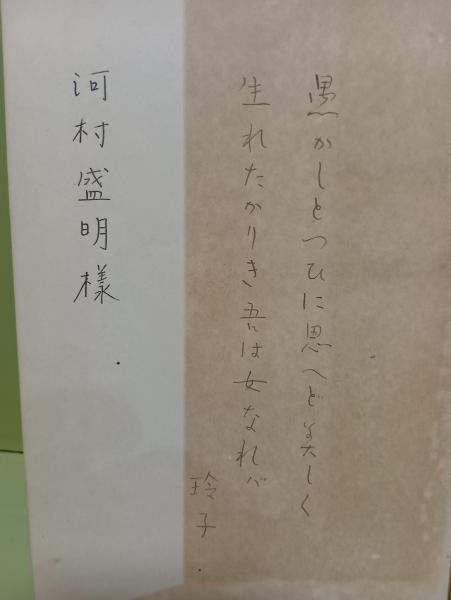 愚かしとつひに思へど美しく
生れたかりき吾は女なれば
玲子
河村盛明様